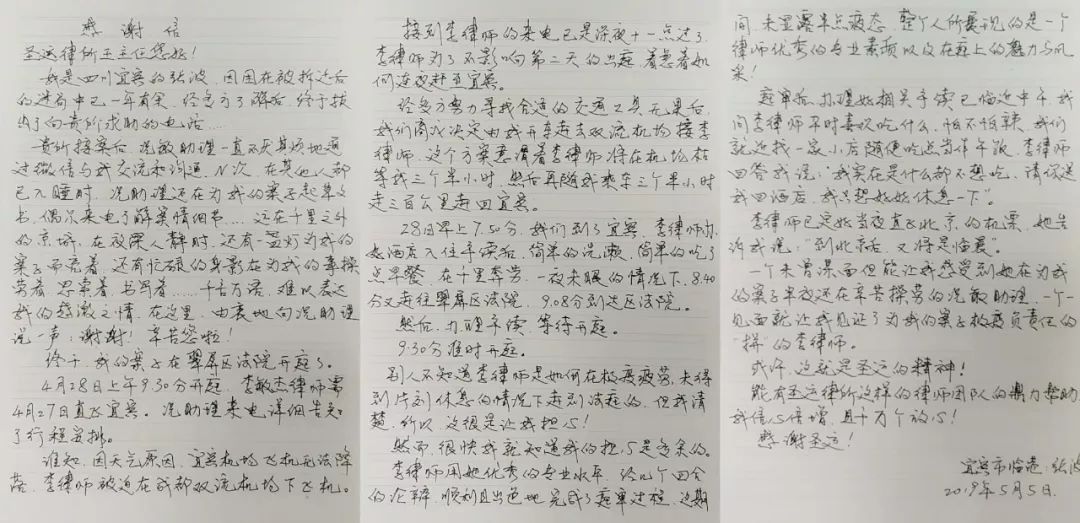 感谢信
圣运律所王主任您好！
我是四川宜宾的张波，因困在被拆迁后
的迷局中已一年有余，经多方了解后，终于拨
出了向贵所求助的电话……
贵所接案后，况敏助理一直不厌其烦地通
过微信与我交流和沟通N次，在其他人都
已入睡时，况助理还在为我的案子起草文
书，偶尔来电了解案情细节……远在千里之外
的京城，在夜深人静时，还有一盏灯为我的
案子而亮着，还有忙碌的身影在为我的事操
劳着、思索着、书写着……千言万语，难以表达
我的感激之情，在这里，由衷地向况助理
说一声：谢谢！辛苦您啦！
终于，我的案子在翠屏区法院开庭了。
4月28日上午9:30分开庭，李敏杰律师需
4月27日直飞宜宾。况助理来电详细告知
了行程安排。
谁知，因天气原因，宜宾机场飞机无法降
落，李律师被迫在成都双流机场下飞机。
接到李律师的来电已是深夜十一点过了，
李律师为了不影响第二天的出庭，着急着如
何连夜赶至宜宾。
经多方努力寻找合适的交通工具无果后，
我们商议决定由我开车赶去双流机场接李
律师，这个方案意谓着李律师得在机场枯
等我三个半小时，然后再随我乘车三个半小时
走三百公里赶回宜宾。
28日早上7.50分，我们到了宜宾，李律师办
好酒店入住手续后，简单的洗漱，简单的吃了
点早餐，在千里奔劳、一夜未眠的情况下，8.40
分又赶往翠屏区法院，9.08分到达区法院。
然后，办理手续，等待开庭。
9:30分准时开庭。
别人不知道李律师是如何在极度疲劳，未得
到片刻休息的情况下赶到法庭的，但我清
楚，所以，这很是让我担心！
然而，很快我就知道我的担心是多余的。
李律师用她优秀的专业水平，经几个回合
的论辩，顺利且出色地完成了庭审过程，这期
间，未显露半点疲态，整个人所展现的是一个
律师优秀的专业素质以及在庭上的魅力与风
采！
庭审后，办理好相关手续已临近中午，我
问李律师平时喜欢吃什么，怕不怕辣，我们
就近找一家小店随便吃点当作午饭，李律师
回答我说：“我实在是什么都不想吃，请你送
我回酒店，我只想好好休息一下”。
李律师已定好当夜直飞北京的机票，她告
诉我说：“到北京后，又将是凌晨”。
一个未曾谋面但能让我感受到她在为我
的案子半夜还在辛苦操劳的况敏助理，一个一
见面就让我见证了为我的案子极度负责任的
“拼”的李律师。
或许，这就是圣运的精神！
能有圣运律所这样的律师团队的鼎力帮助，
我信心倍增，且十万个放心！
感谢圣运！
宜宾市临港：张波
2019年5月5日.